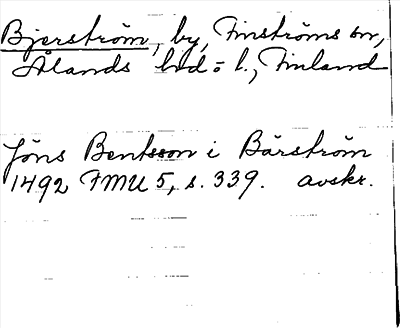 Bjerström, by, Finströms sn,
Ålands hd o l., Finland
Jöns Bentsson i Bärström
1492 FMU 5, s. 339. avskr.